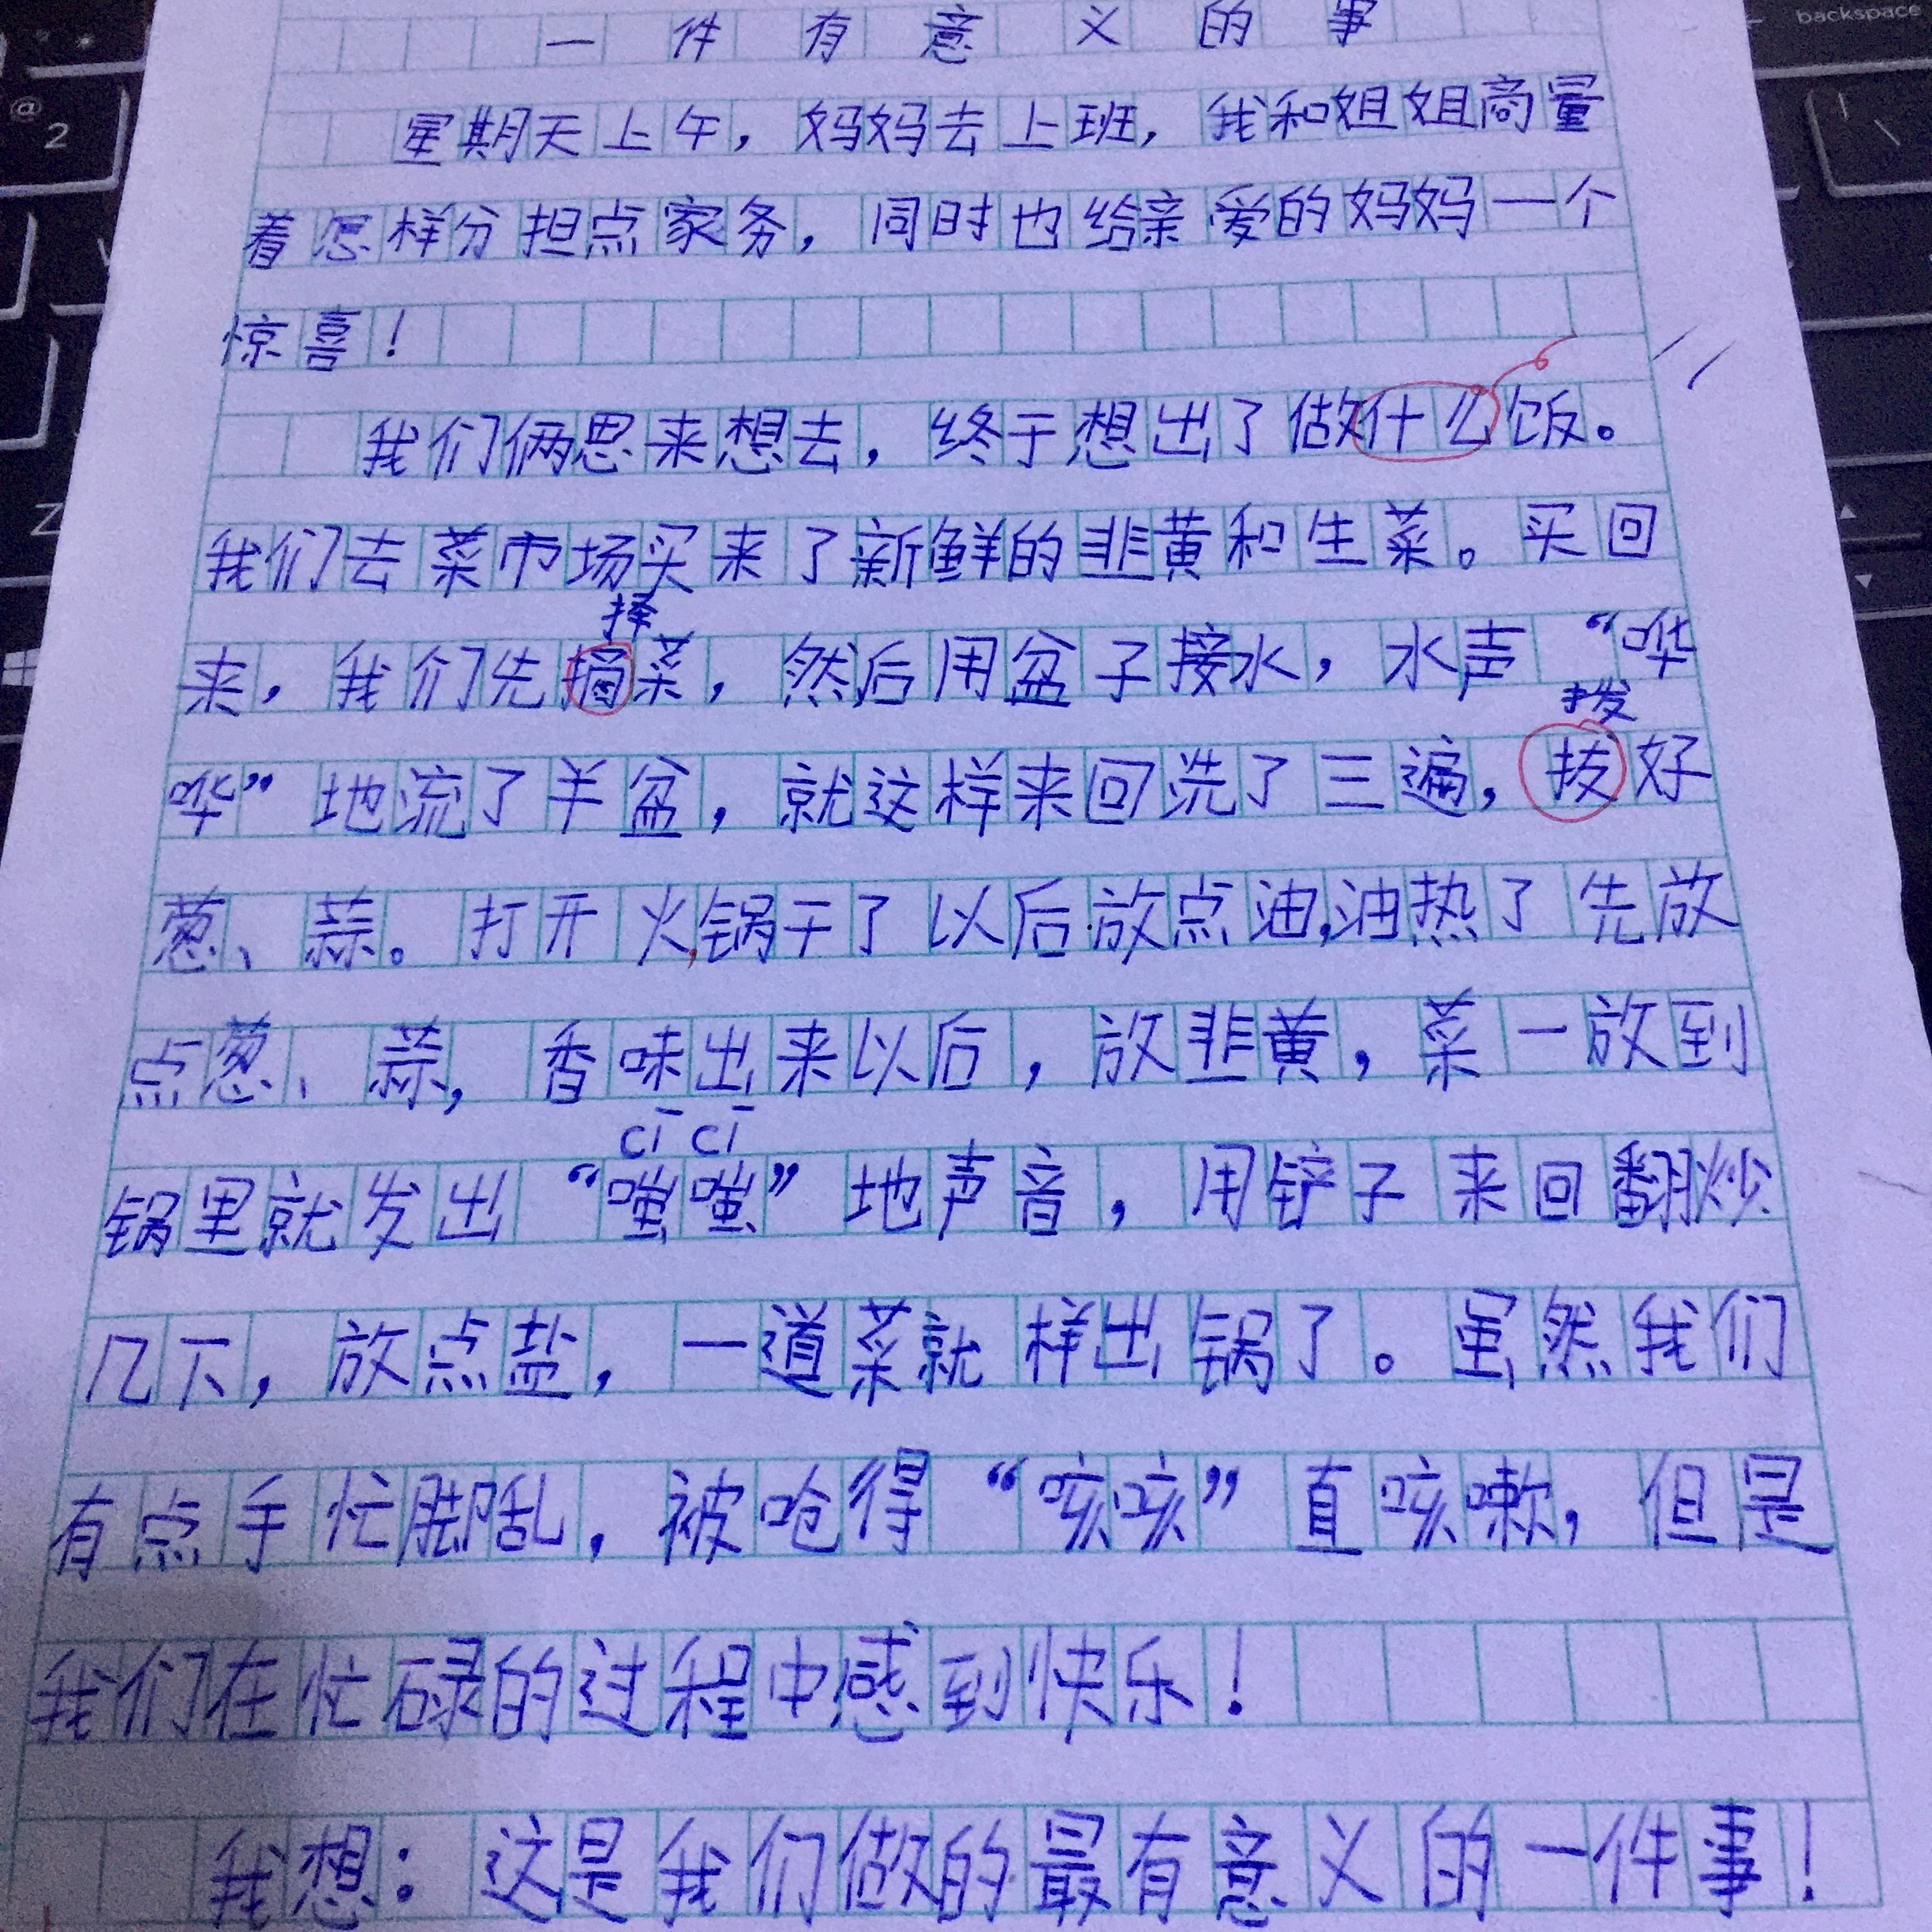 backspace
@
2
Z
一件有意义的事
星期天上午，妈妈去上班，我和姐姐商量
着怎样分担点家务，同时也给亲爱的妈妈一个
惊喜！
我们俩思来想去，终于想出了做什么饭。
我们去菜市场买来了新鲜的韭黄和生菜。买回
择
来，我们先摘菜，然后用盆子接水，水声“哗
拨
哗”地流了半盆，就这样来回洗了三遍，技好
葱、蒜。打开火,锅干了以后放点油,油热了先放
点葱、蒜，香味出来以后，放韭黄，菜一放到
cī cī
锅里就发出“嗞嗞”地声音，用铲子来回翻炒
几下，放点盐，一道菜就样出锅了。虽然我们
有点手忙脚乱，被呛得“咳咳”直咳嗽，但是
我们在忙碌的过程中感到快乐！
我想：这是我们做的最有意义的一件事！